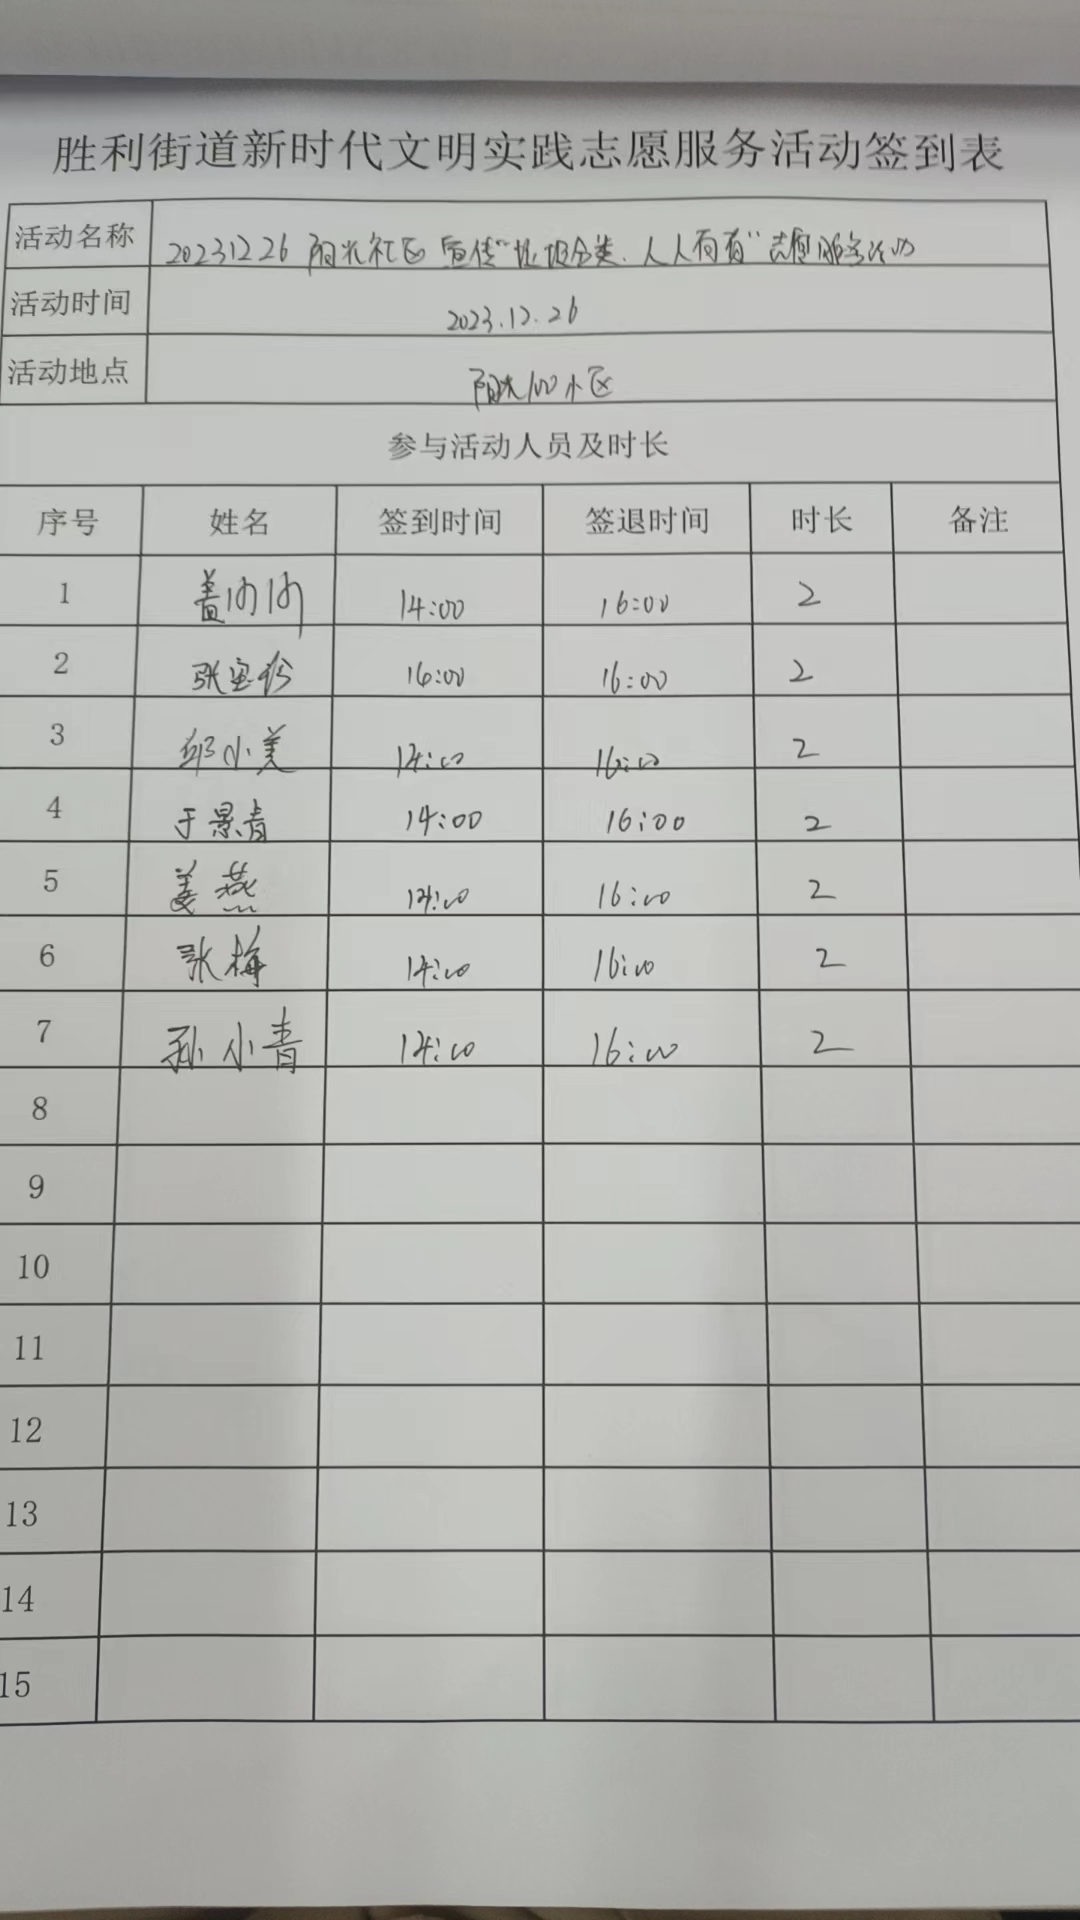 胜利街道新时代文明实践志愿服务活动签到表
活动名称 20231226 阳光社区 宣传"垃圾分类、人人有责"志愿服务活动
活动时间 2023.12.26
活动地点 阳光100小区
参与活动人员及时长
序号 姓名 签到时间 签退时间 时长 备注
1 14:00 16:00 2
2 16:00 16:00 2
3 邱小美 14:00 16:00 2
4 于景青 14:00 16:00 2
5 姜燕 14:00 16:00 2
6 张梅 14:00 16:00 2
7 孙小青 14:00 16:00 2
8
9
10
11
12
13
14
15